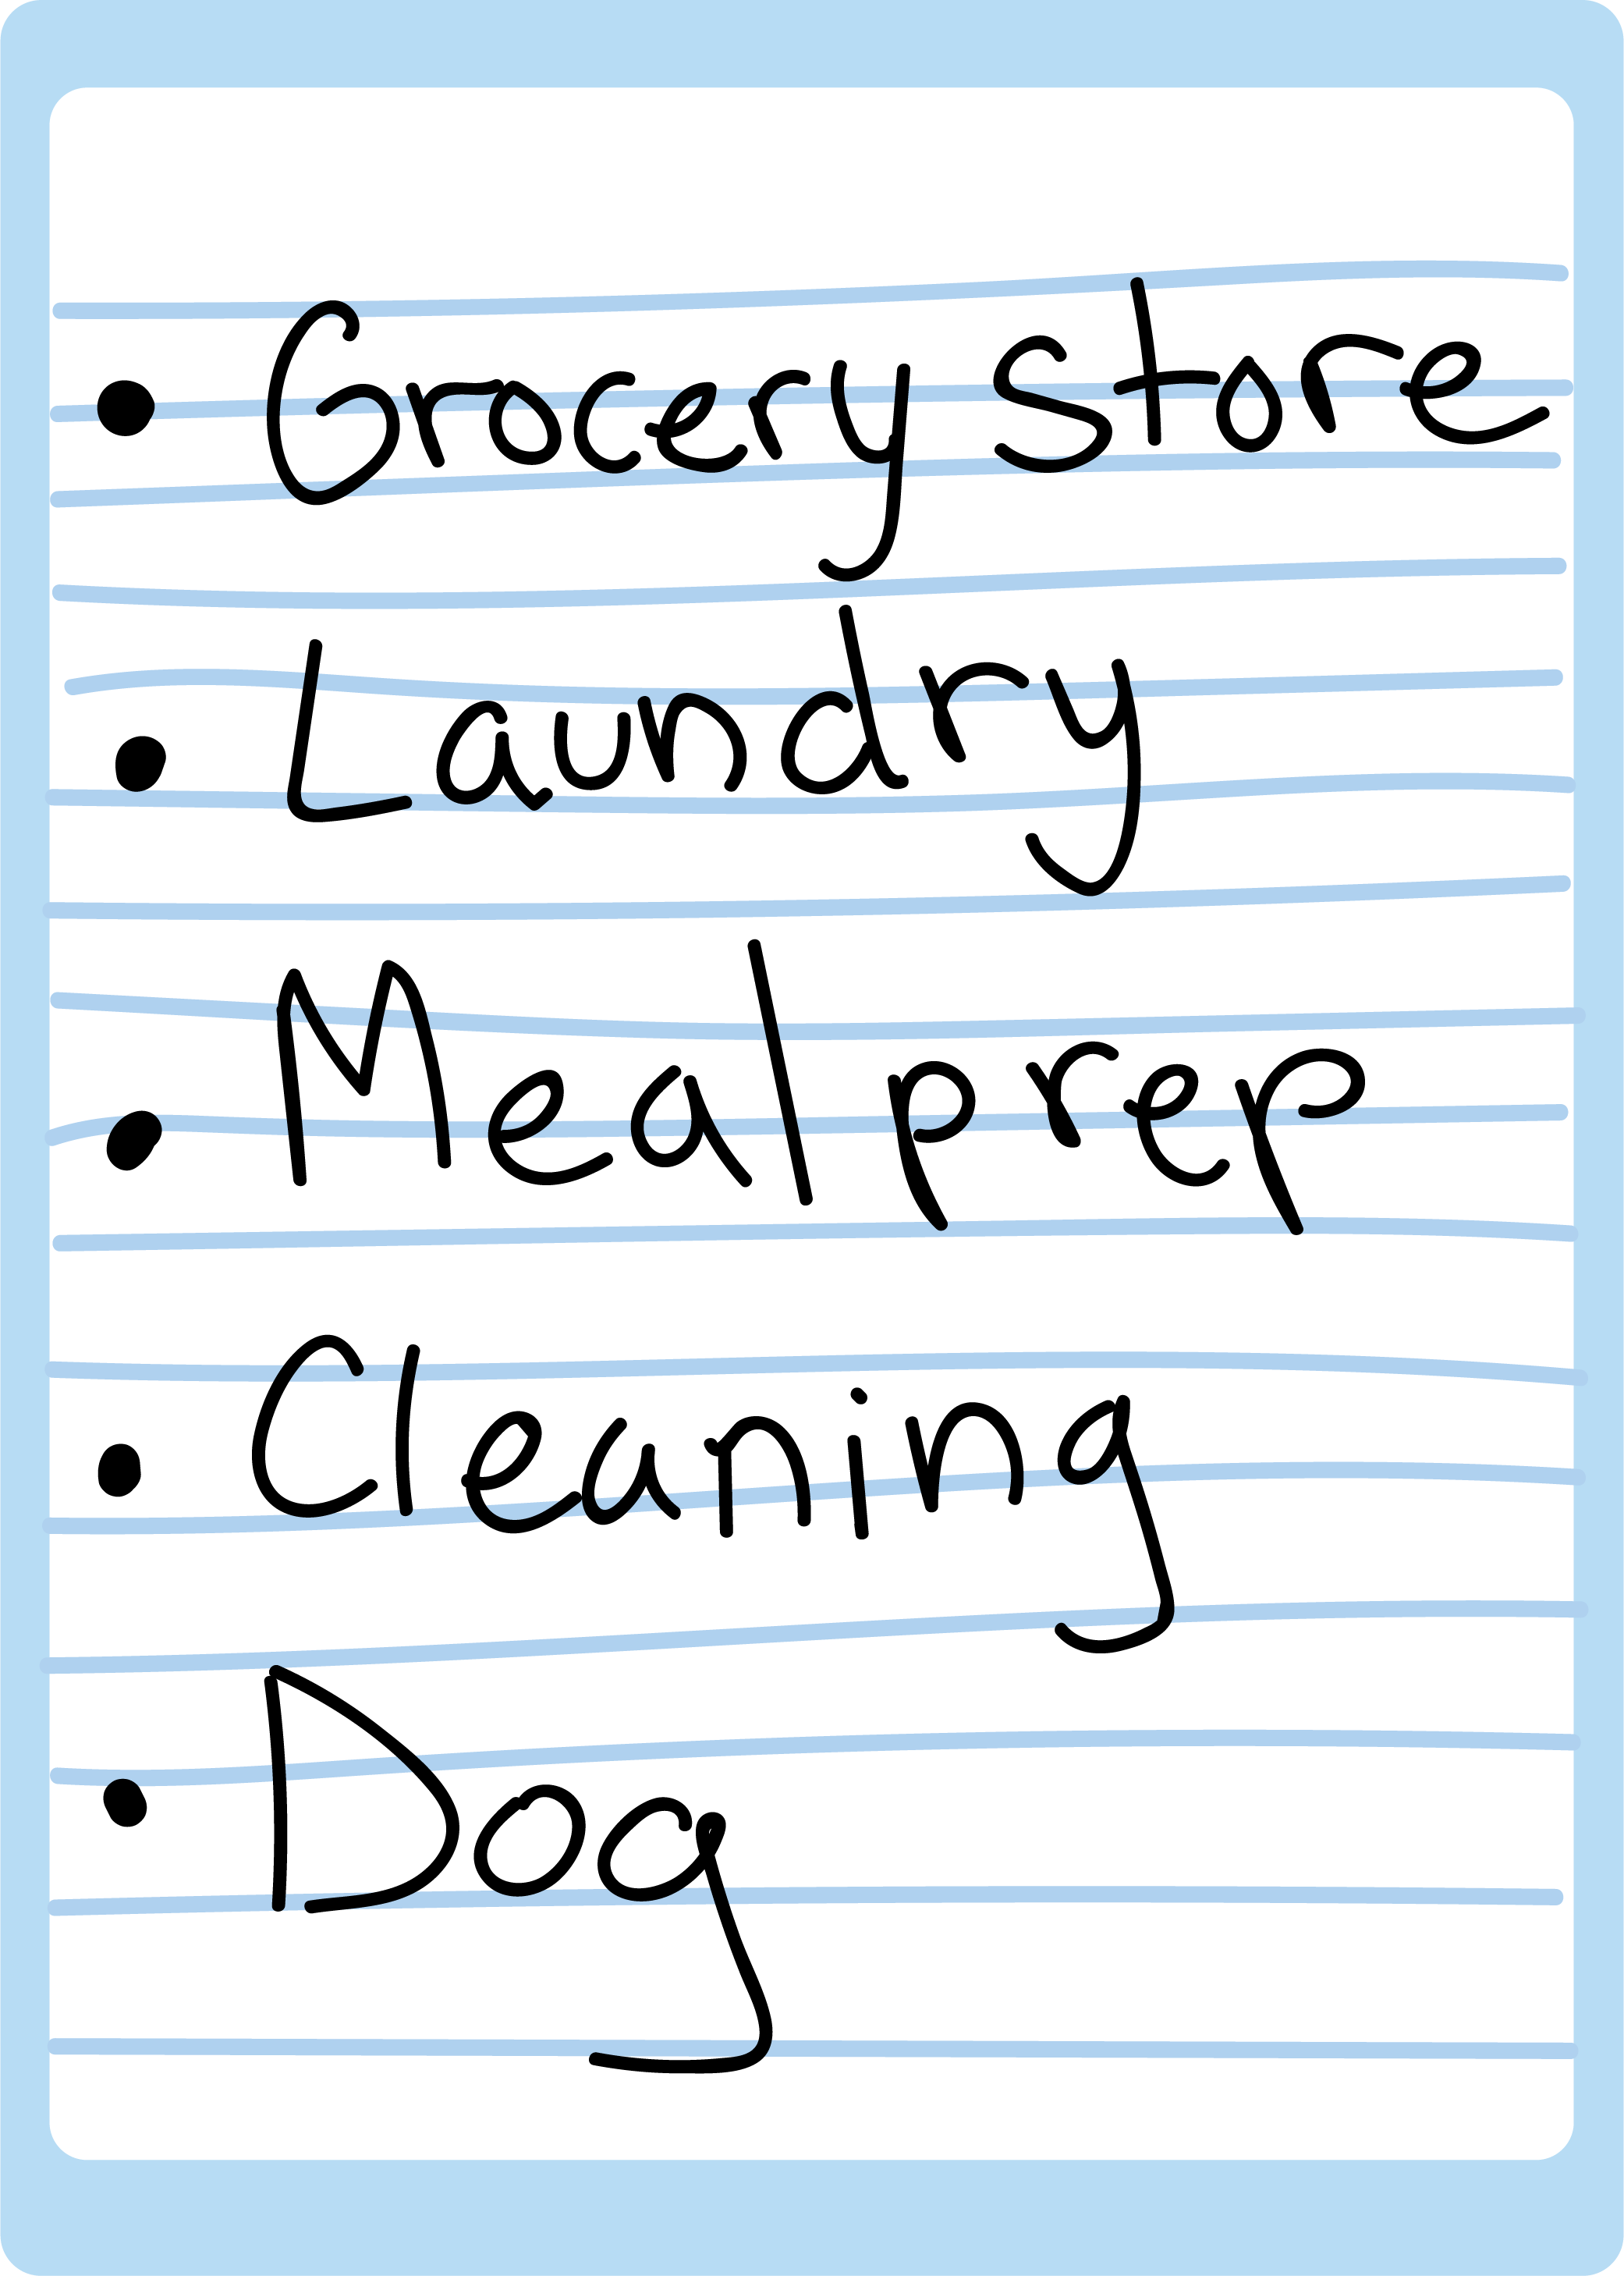 • Grocery store
• Laundry
• Meal prep
• Cleaning
• Dog